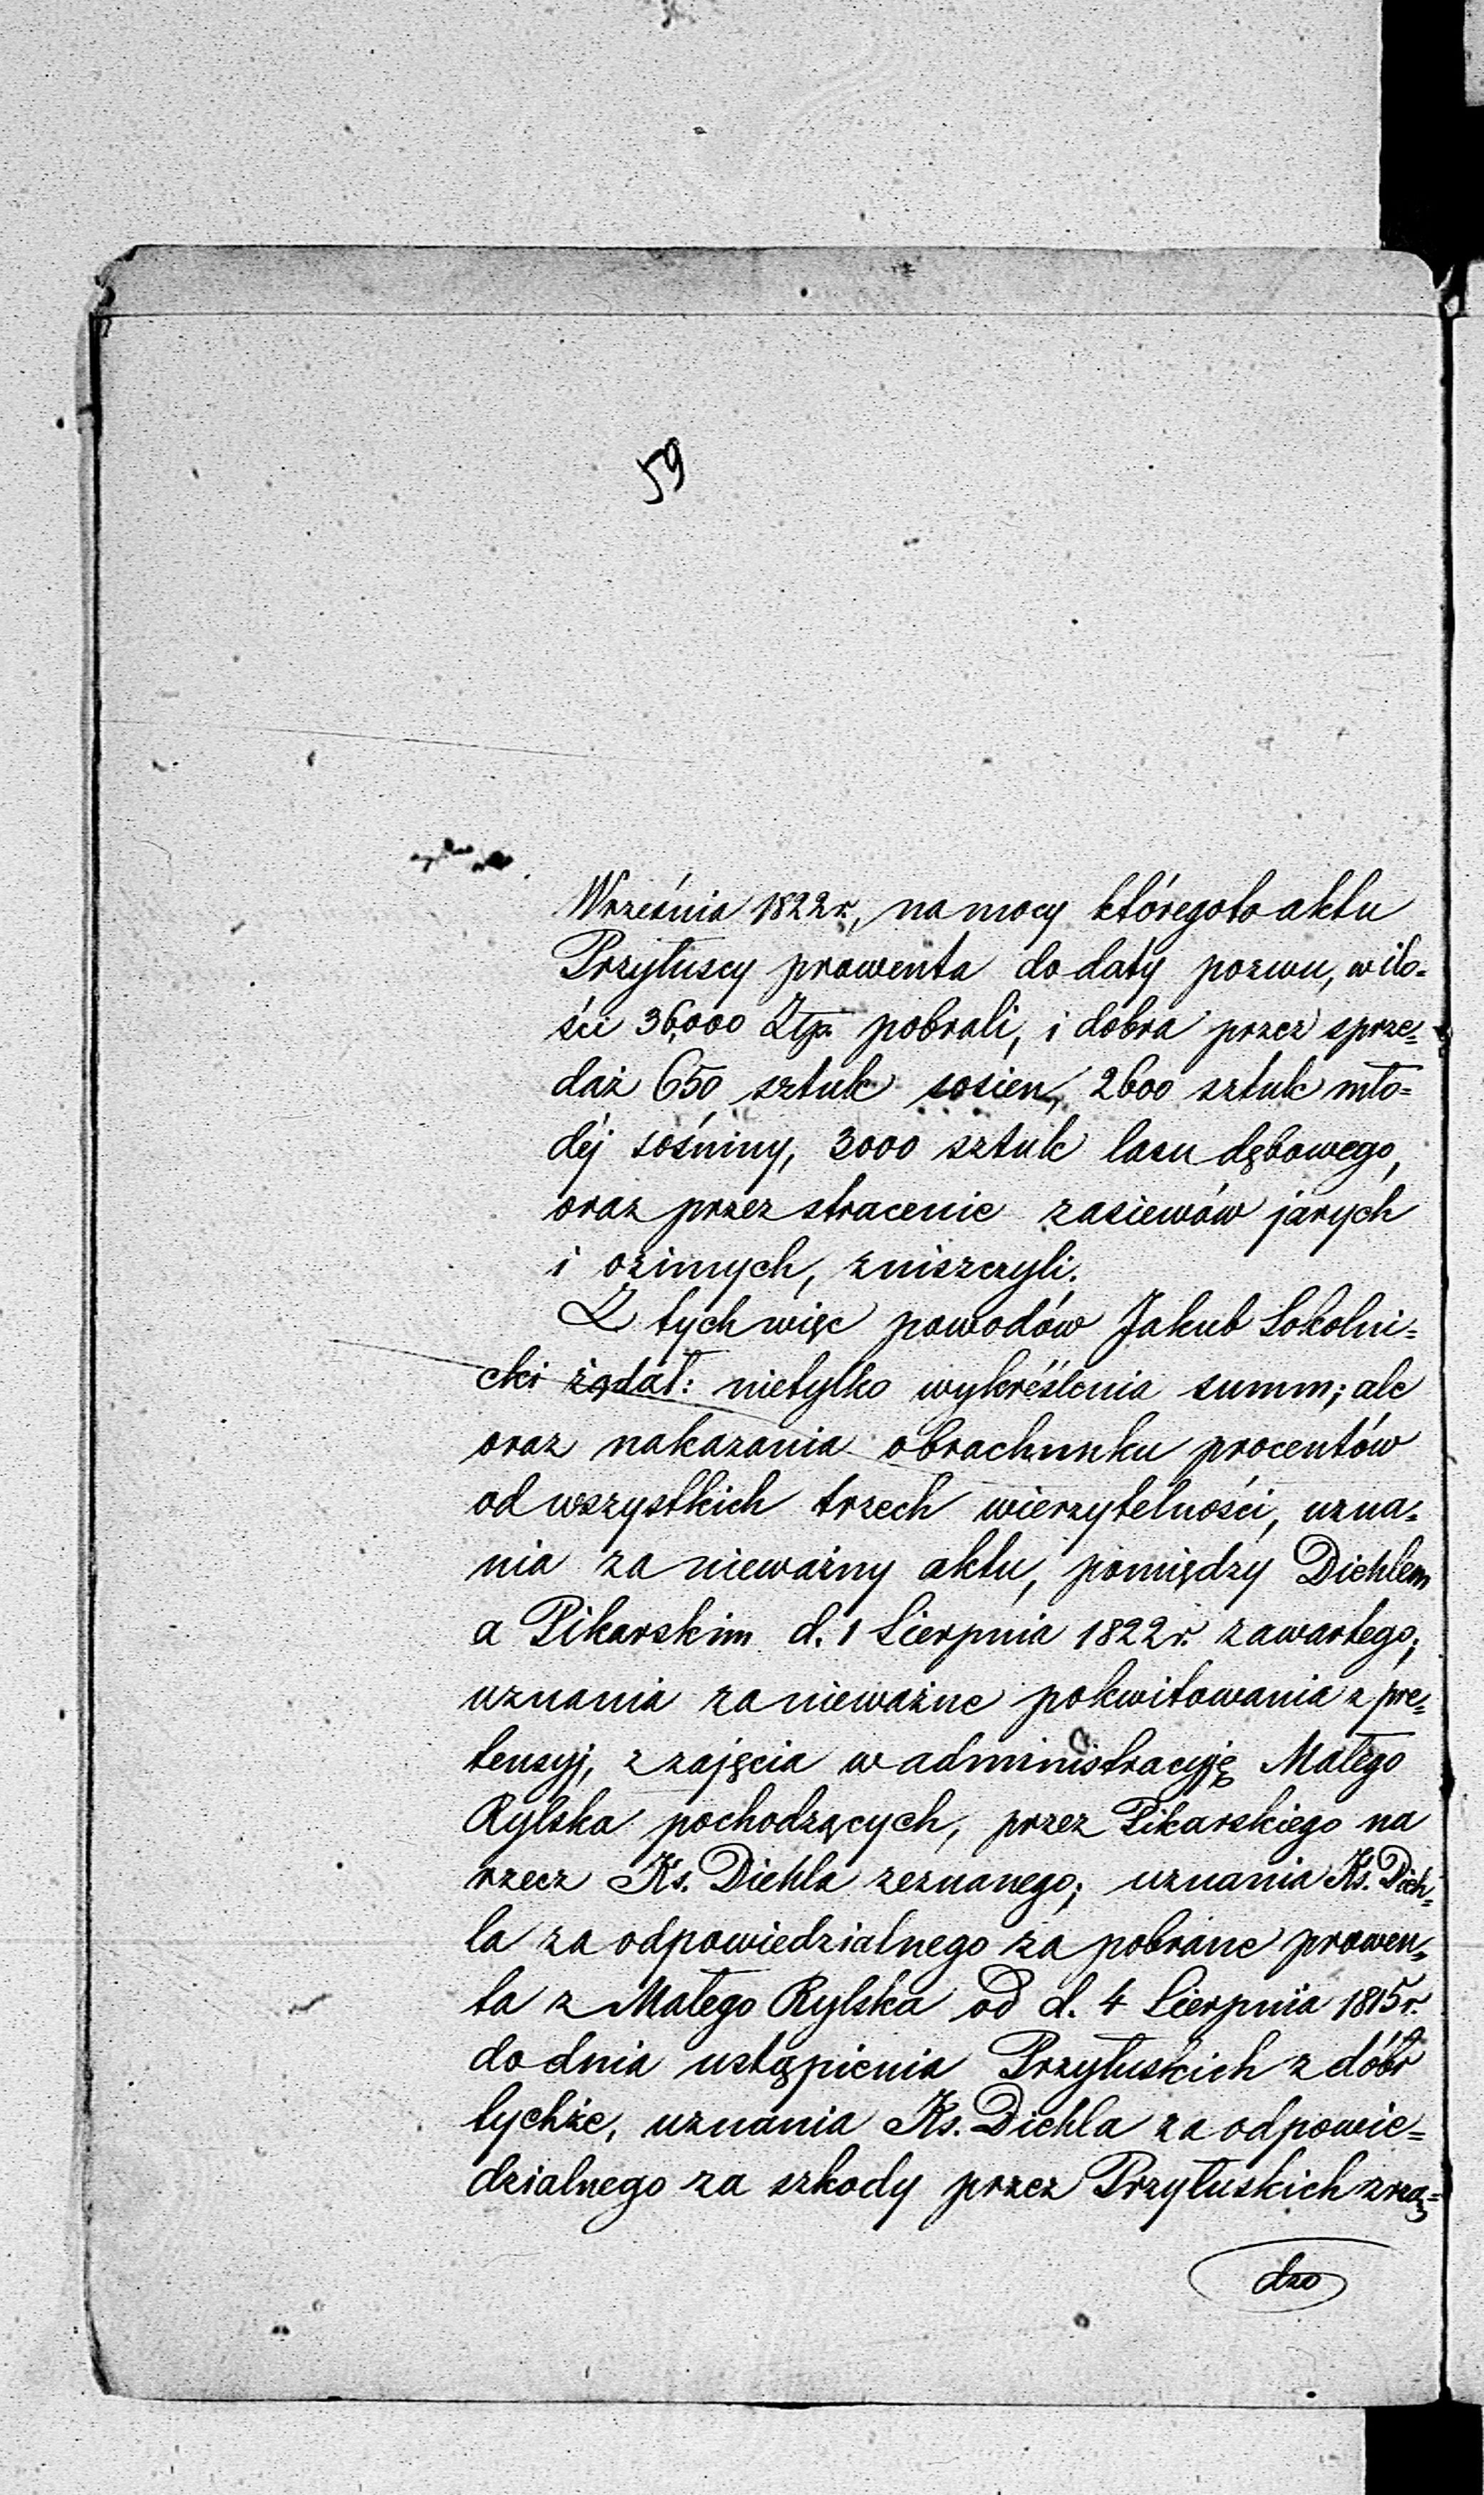 59
Września 1822 r., na mocy któregoto aktu
Przyłuscy prowenta do daty pozwu, w ilo=
ści 36,000 Złp. pobrali, i dobra przez sprze=
daż 650 sztuk sosien, 2600 sztuk mło=
déj sośniny, 3000 sztuk lasu dębowego,
oraz przez stracenie zasiewów jarych
i ozimych, zniszczyli.
Z tych więc powodów Jakub Sokolni=
cki żądał: nietylko wykréślenia summ; ale
oraz nakazania obrachunku procentów
od wszystkich trzech wierzytelności, uzna=
nia za nieważny aktu, pomiędzy Diehlem
a Pikarskim d. 1 Sierpnia 1822 r. zawartego;
uznania za nieważne pokwitowania z pre=
tensyj, z zajęcia w administracyję Małego
Rylska pochodzących, przez Pikarskiego na
rzecz Ks. Diehla zeznanego; uznania Ks. Dieh=
la za odpowiedzialnego za pobrane prowen=
ta z Małego Rylska od d. 4 Sierpnia 1815 r.
do dnia ustąpienia Przyłuskich z dóbr
tychże, uznania Ks. Diehla za odpowie=
dzialnego za szkody przez Przyłuskich zrzą=
dzo